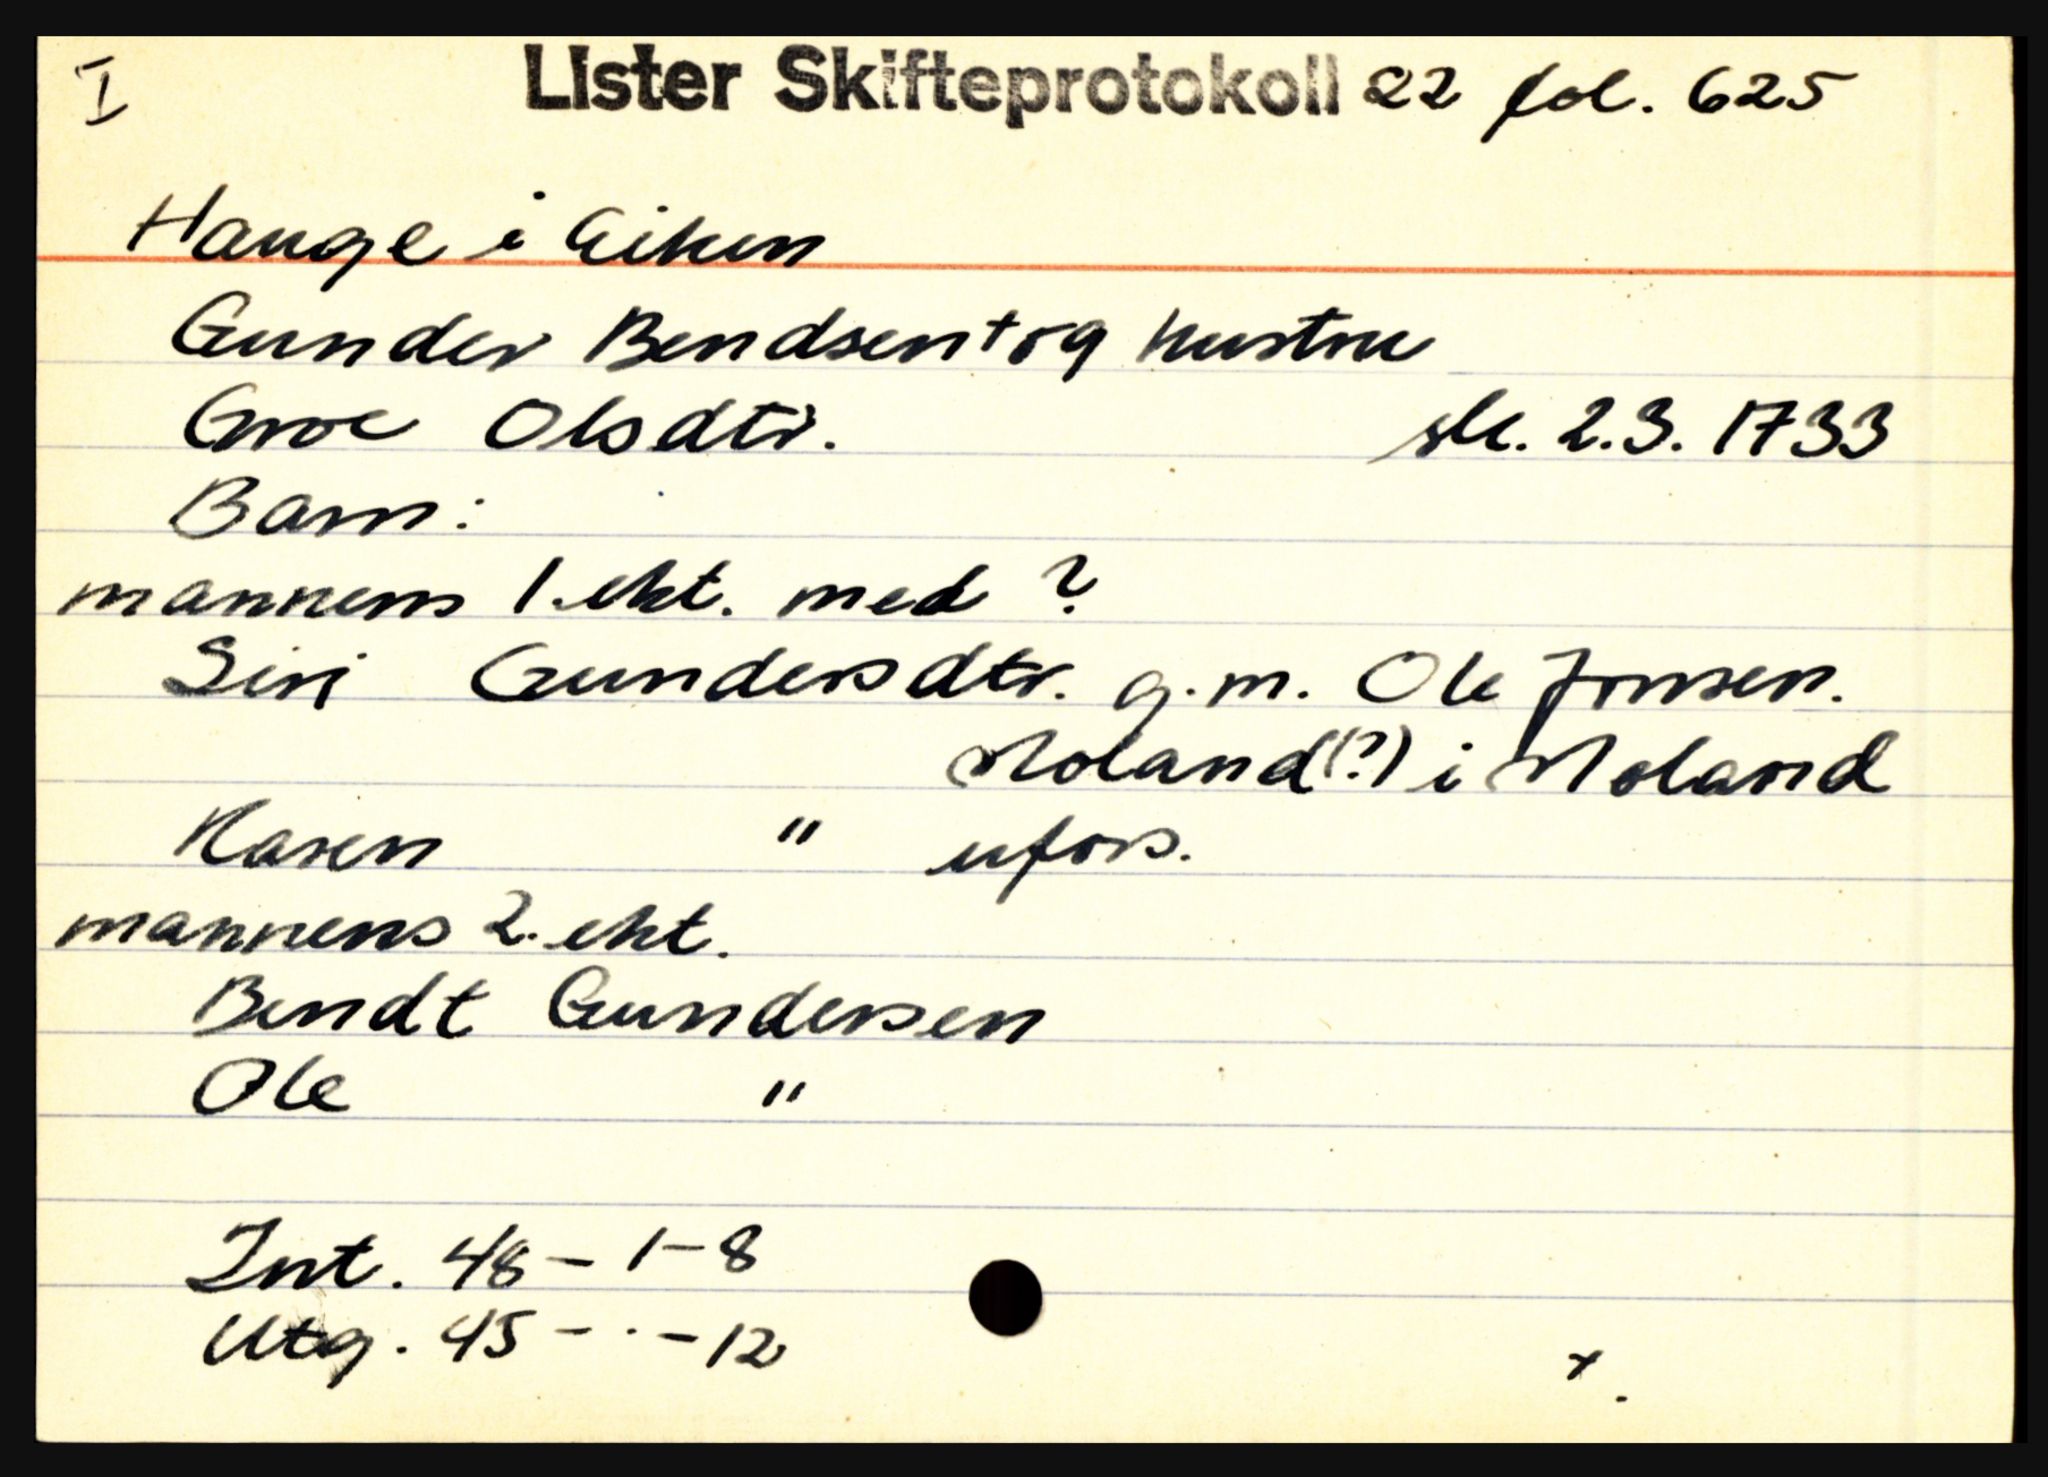 I
Lister Skifteprotokoll 22 fol. 625
Hauge i Eiken
Gunder Bendsen + og hustru
Groe Olsdtr. sk. 2.3. 1733
Barn:
mannens 1. ekt. med ?
Siri Gundersdtr. g.m. Ole Jonsen.
Moland(?) i Moland
Karen " ufors.
mannens 2. ekt.
Bendt Gundersen
Ole "
Int. 48 - 1 - 8
Utg. 45 - · - 12
x .